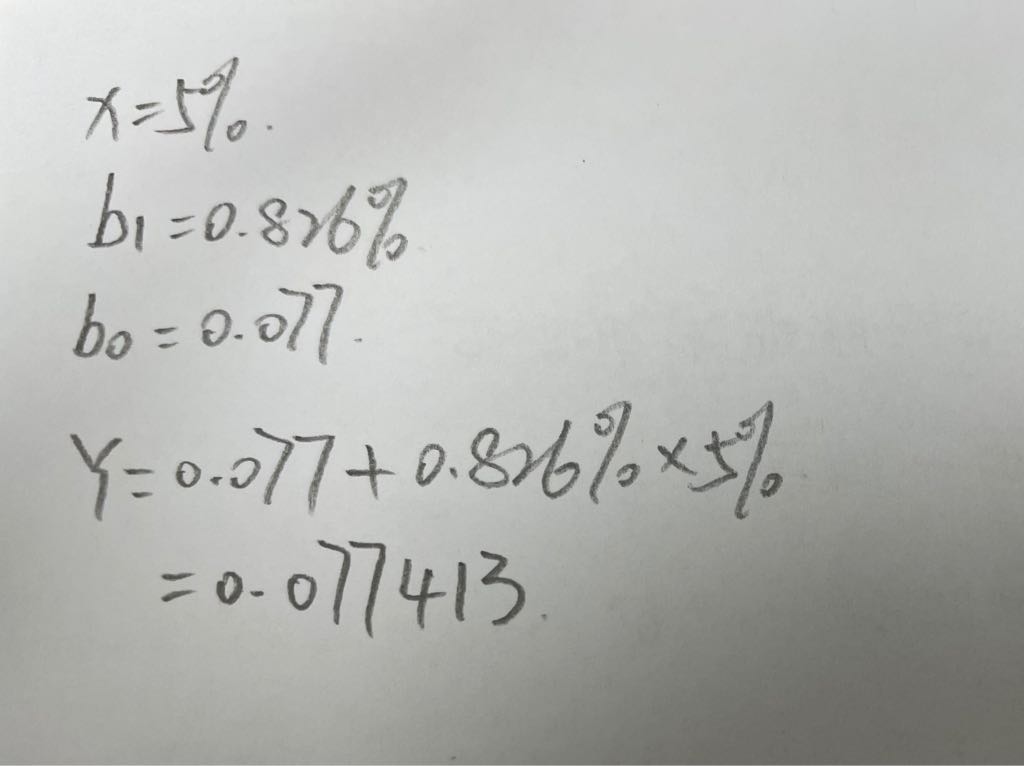 x=5%.
b1=0.826%
b0=0.077.
Y=0.077+0.826%×5%
=0.077413.